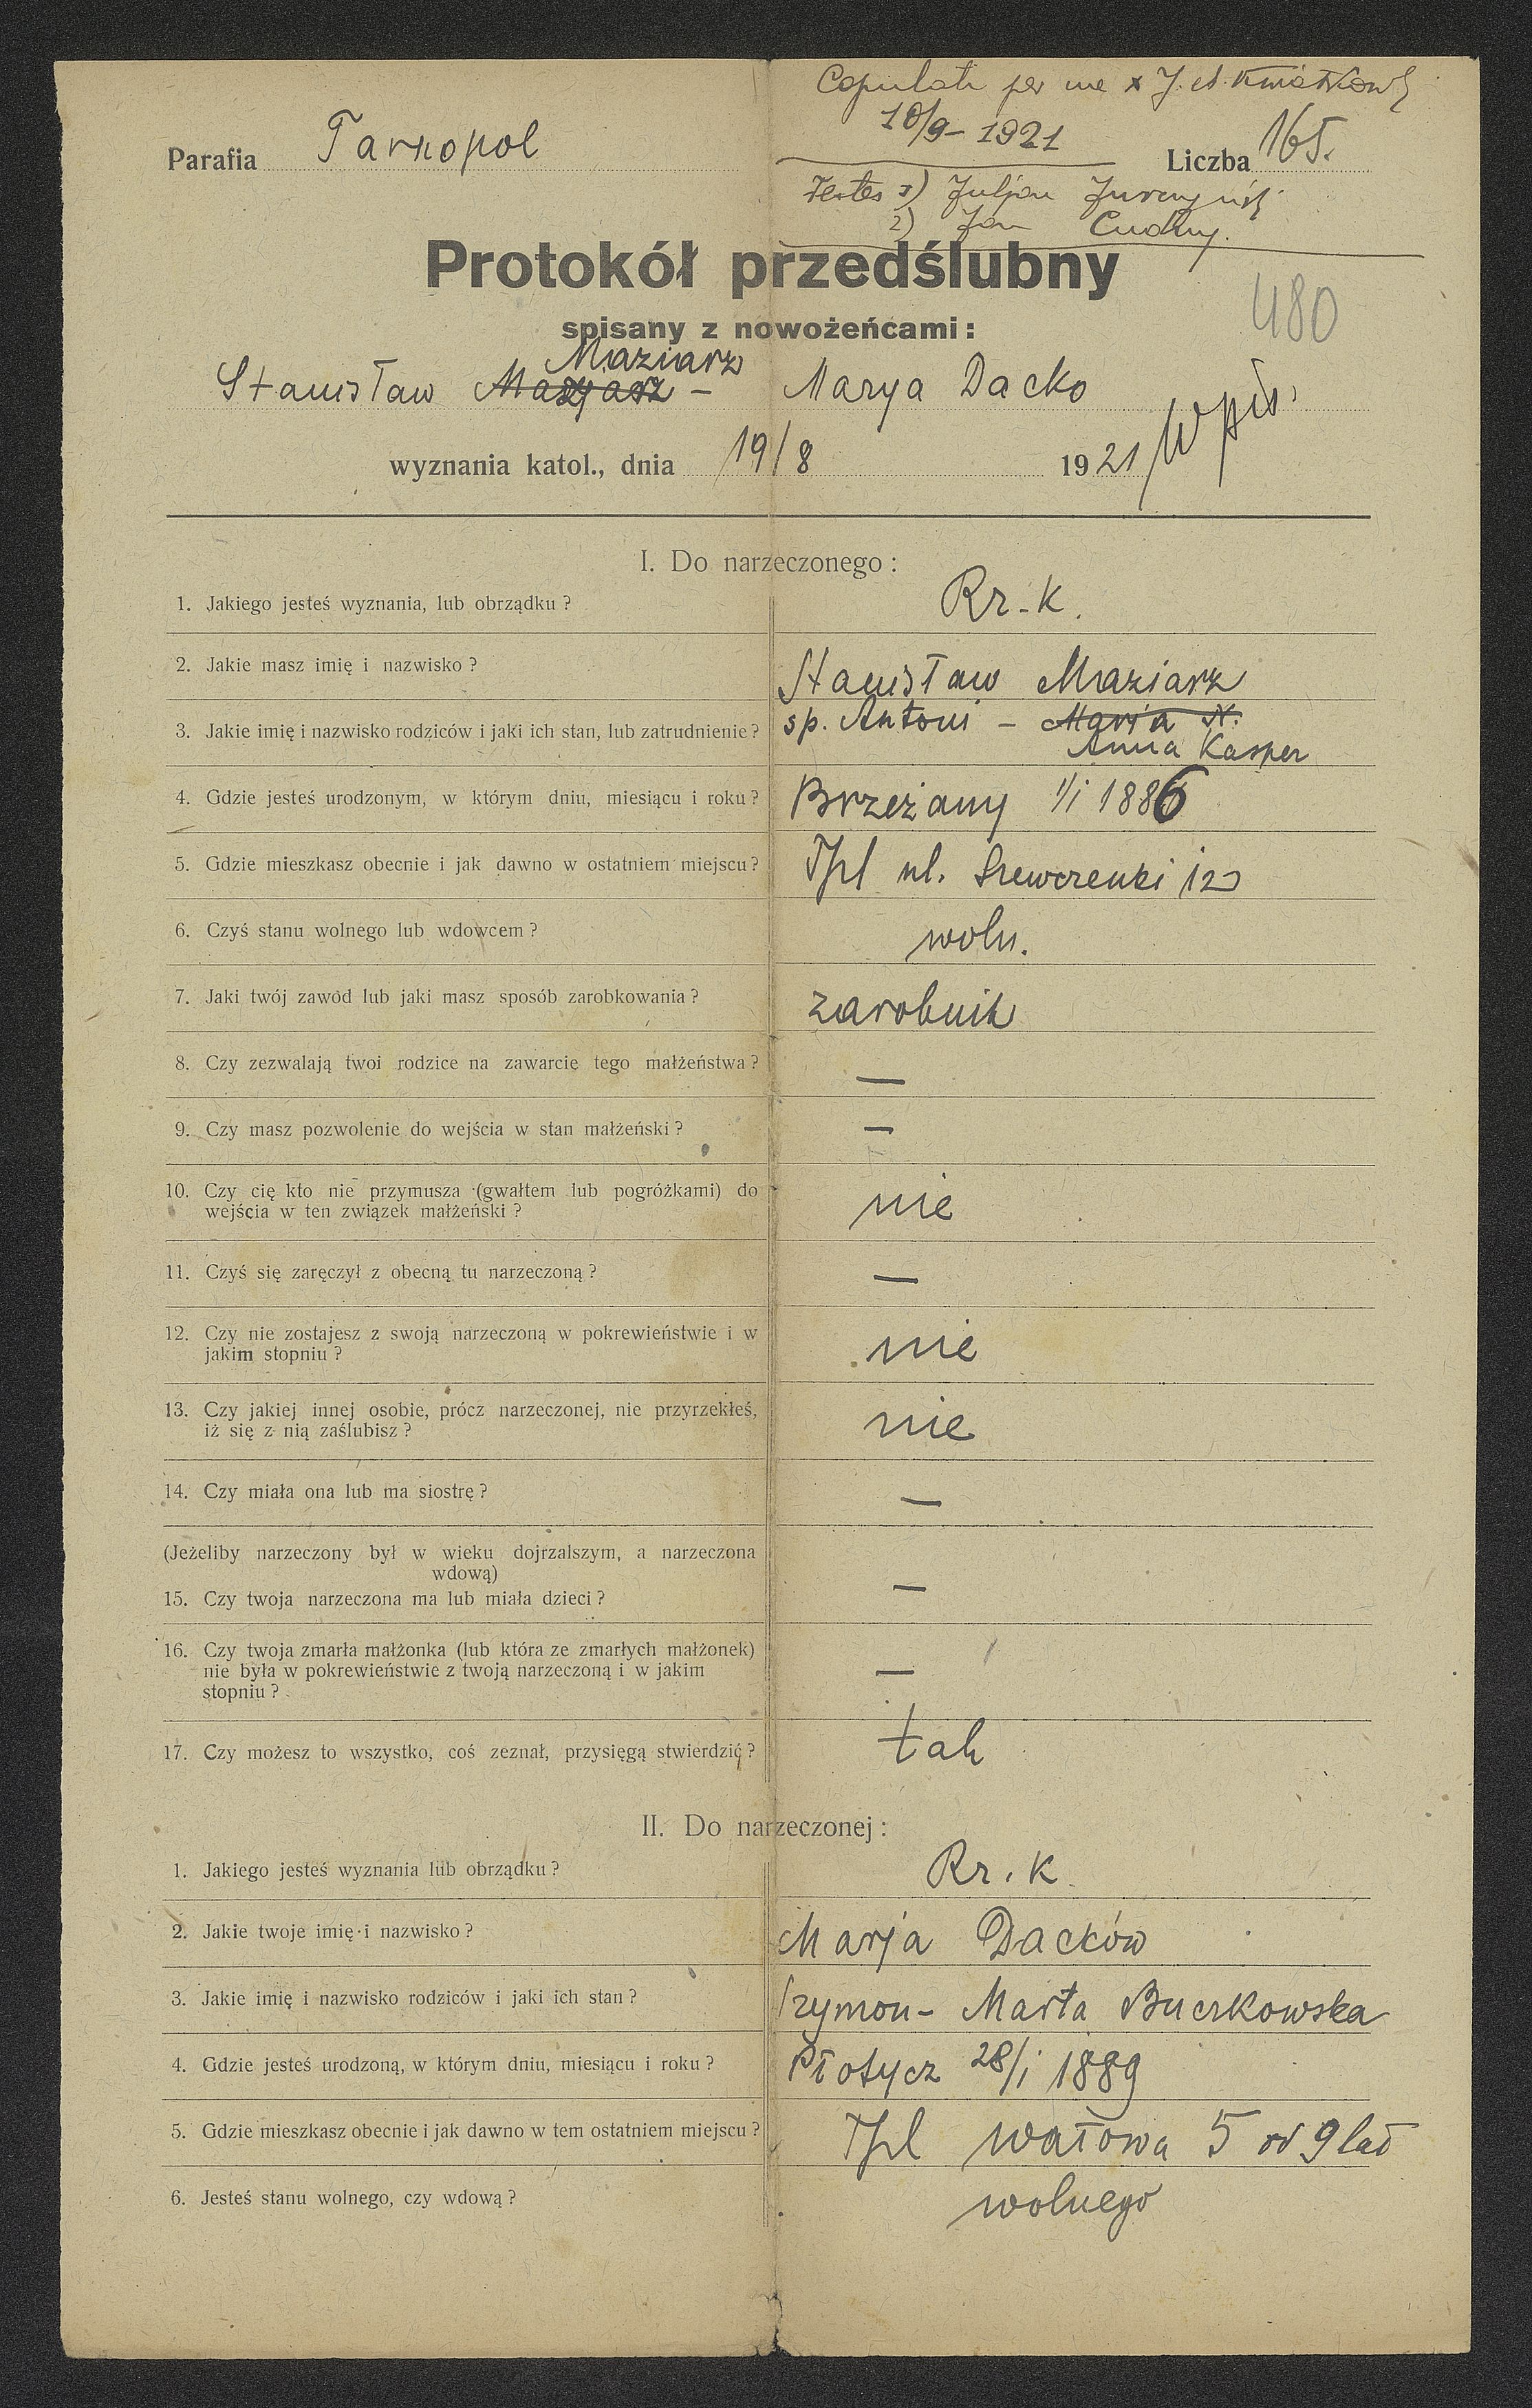 Copulati per me x J. A. Kwiatkowski
10/9 - 1921
Parafia Tarnopol
Liczba 165.
Testes 1) Juljan
2) Jan Cudny.
Protokół przedślubny
480
spisany z nowożeńcami:
Maziarz
Stanisław Mazyarz - Marya Dacko
Wpis.
wyznania katol., dnia 19/8 1921
I. Do narzeczonego:
1. Jakiego jesteś wyznania, lub obrządku? Rz.-k.
2. Jakie masz imię i nazwisko? Stanisław Maziarz
3. Jakie imię i nazwisko rodziców i jaki ich stan, lub zatrudnienie? sp. Antoni - Marja N.
Anna Kasper
4. Gdzie jesteś urodzonym, w którym dniu, miesiącu i roku? Brzeżany 1/1 1886
5. Gdzie mieszkasz obecnie i jak dawno w ostatniem miejscu? Tpl ul. Szewczenki 12
6. Czyś stanu wolnego lub wdowcem? woln.
7. Jaki twój zawód lub jaki masz sposób zarobkowania? zarobnik
8. Czy zezwalają twoi rodzice na zawarcie tego małżeństwa? —
9. Czy masz pozwolenie do wejścia w stan małżeński? —
10. Czy cię kto nie przymusza (gwałtem lub pogróżkami) do
wejścia w ten związek małżeński? nie
11. Czyś się zaręczył z obecną tu narzeczoną? —
12. Czy nie zostajesz z swoją narzeczoną w pokrewieństwie i w
jakim stopniu? nie
13. Czy jakiej innej osobie, prócz narzeczonej, nie przyrzekłeś,
iż się z nią zaślubisz? nie
14. Czy miała ona lub ma siostrę? —
(Jeżeliby narzeczony był w wieku dojrzalszym, a narzeczona
wdową)
15. Czy twoja narzeczona ma lub miała dzieci? —
16. Czy twoja zmarła małżonka (lub która ze zmarłych małżonek)
nie była w pokrewieństwie z twoją narzeczoną i w jakim
stopniu? —
17. Czy możesz to wszystko, coś zeznał, przysięgą stwierdzić? tak
II. Do narzeczonej:
1. Jakiego jesteś wyznania lub obrządku? Rz.k.
2. Jakie twoje imię i nazwisko? Marja Dacków
3. Jakie imię i nazwisko rodziców i jaki ich stan? Szymon - Marta Buczkowska
4. Gdzie jesteś urodzoną, w którym dniu, miesiącu i roku? Płotycz 28/1 1889
5. Gdzie mieszkasz obecnie i jak dawno w tem ostatniem miejscu? Tpl wałowa 5 od 9 lat
6. Jesteś stanu wolnego, czy wdową? wolnego